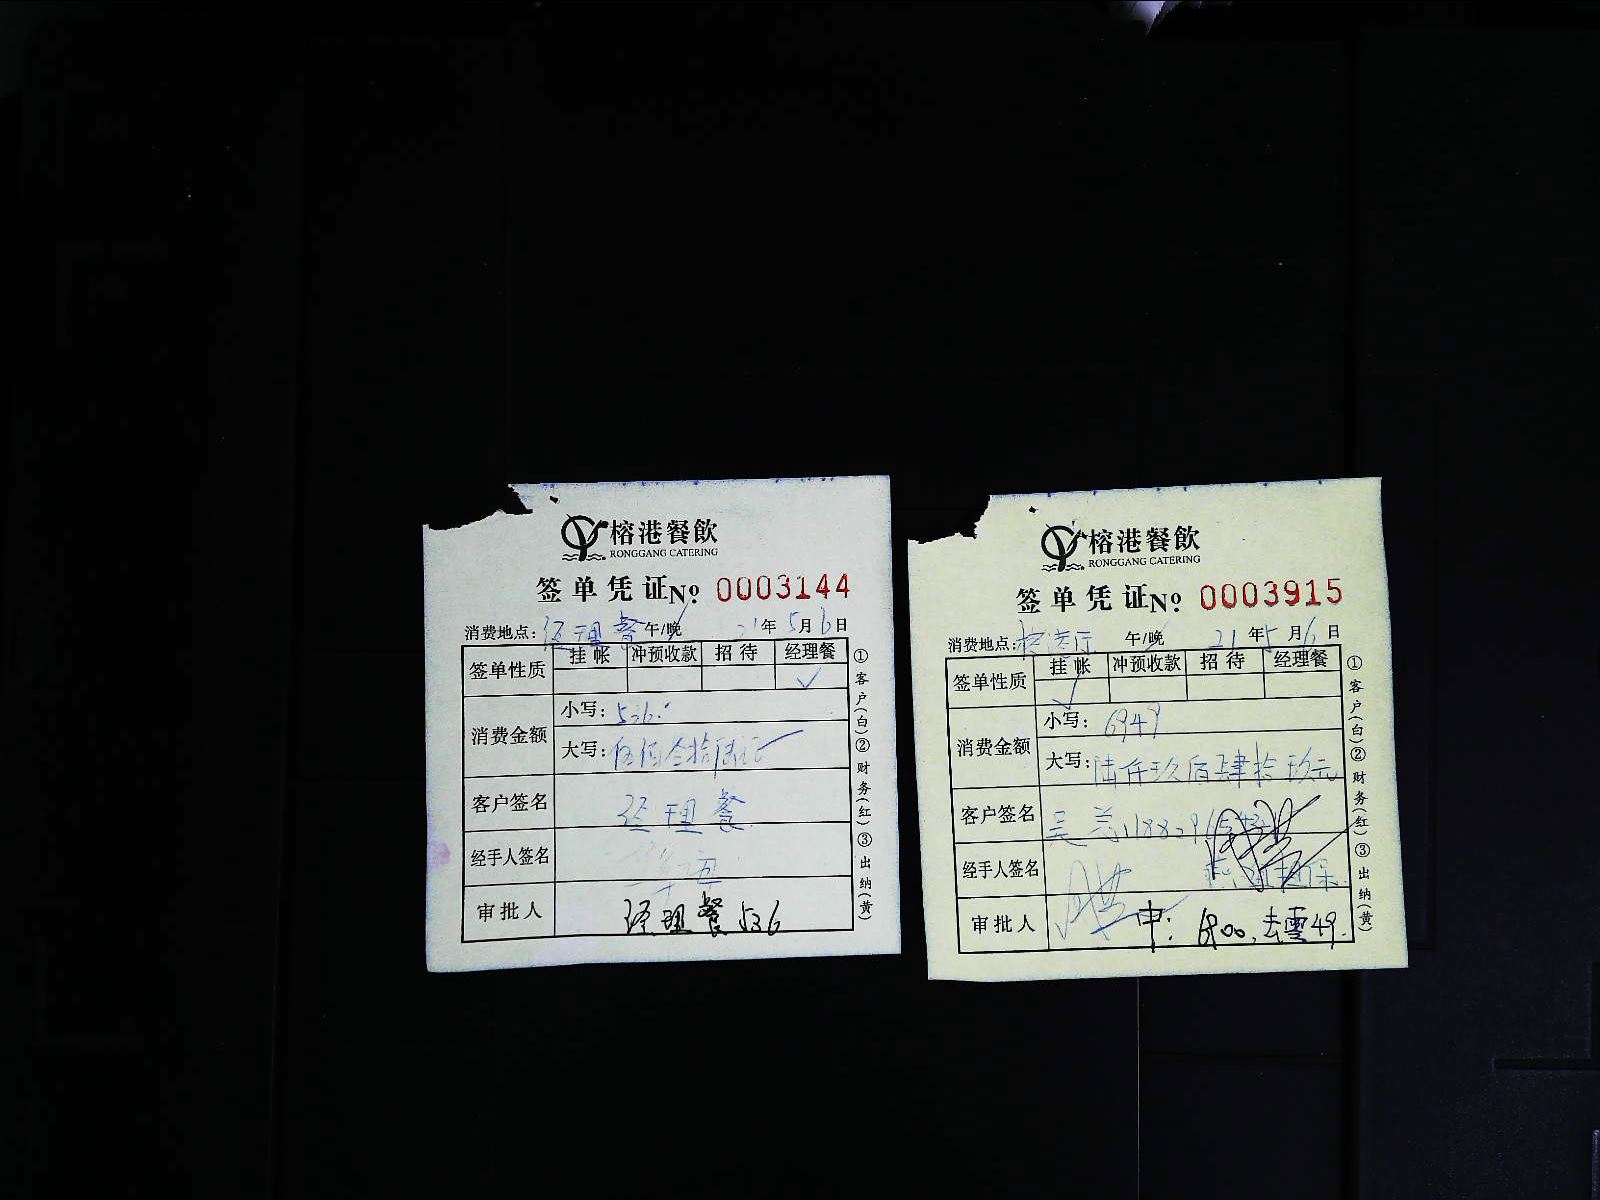 榕港餐飲
RONGGANG CATERING
签单凭证 No 0003144
消费地点：经理餐 午/晚 21年5月6日
签单性质 挂帐 冲预收款 招待 经理餐
✓
消费金额 小写：536.
大写：伍佰叁拾陆元
客户签名 经理餐
经手人签名
审批人 经理餐536
①客户(白)②财务(红)③出纳(黄)
榕港餐飲
RONGGANG CATERING
签单凭证 No 0003915
消费地点： 午/晚 21年5月6日
签单性质 挂帐 冲预收款 招待 经理餐
✓
消费金额 小写：6949
大写：陆仟玖佰肆拾玖元
客户签名 吴总
经手人签名
审批人 申：6900，去零49.
①客户(白)②财务(红)③出纳(黄)